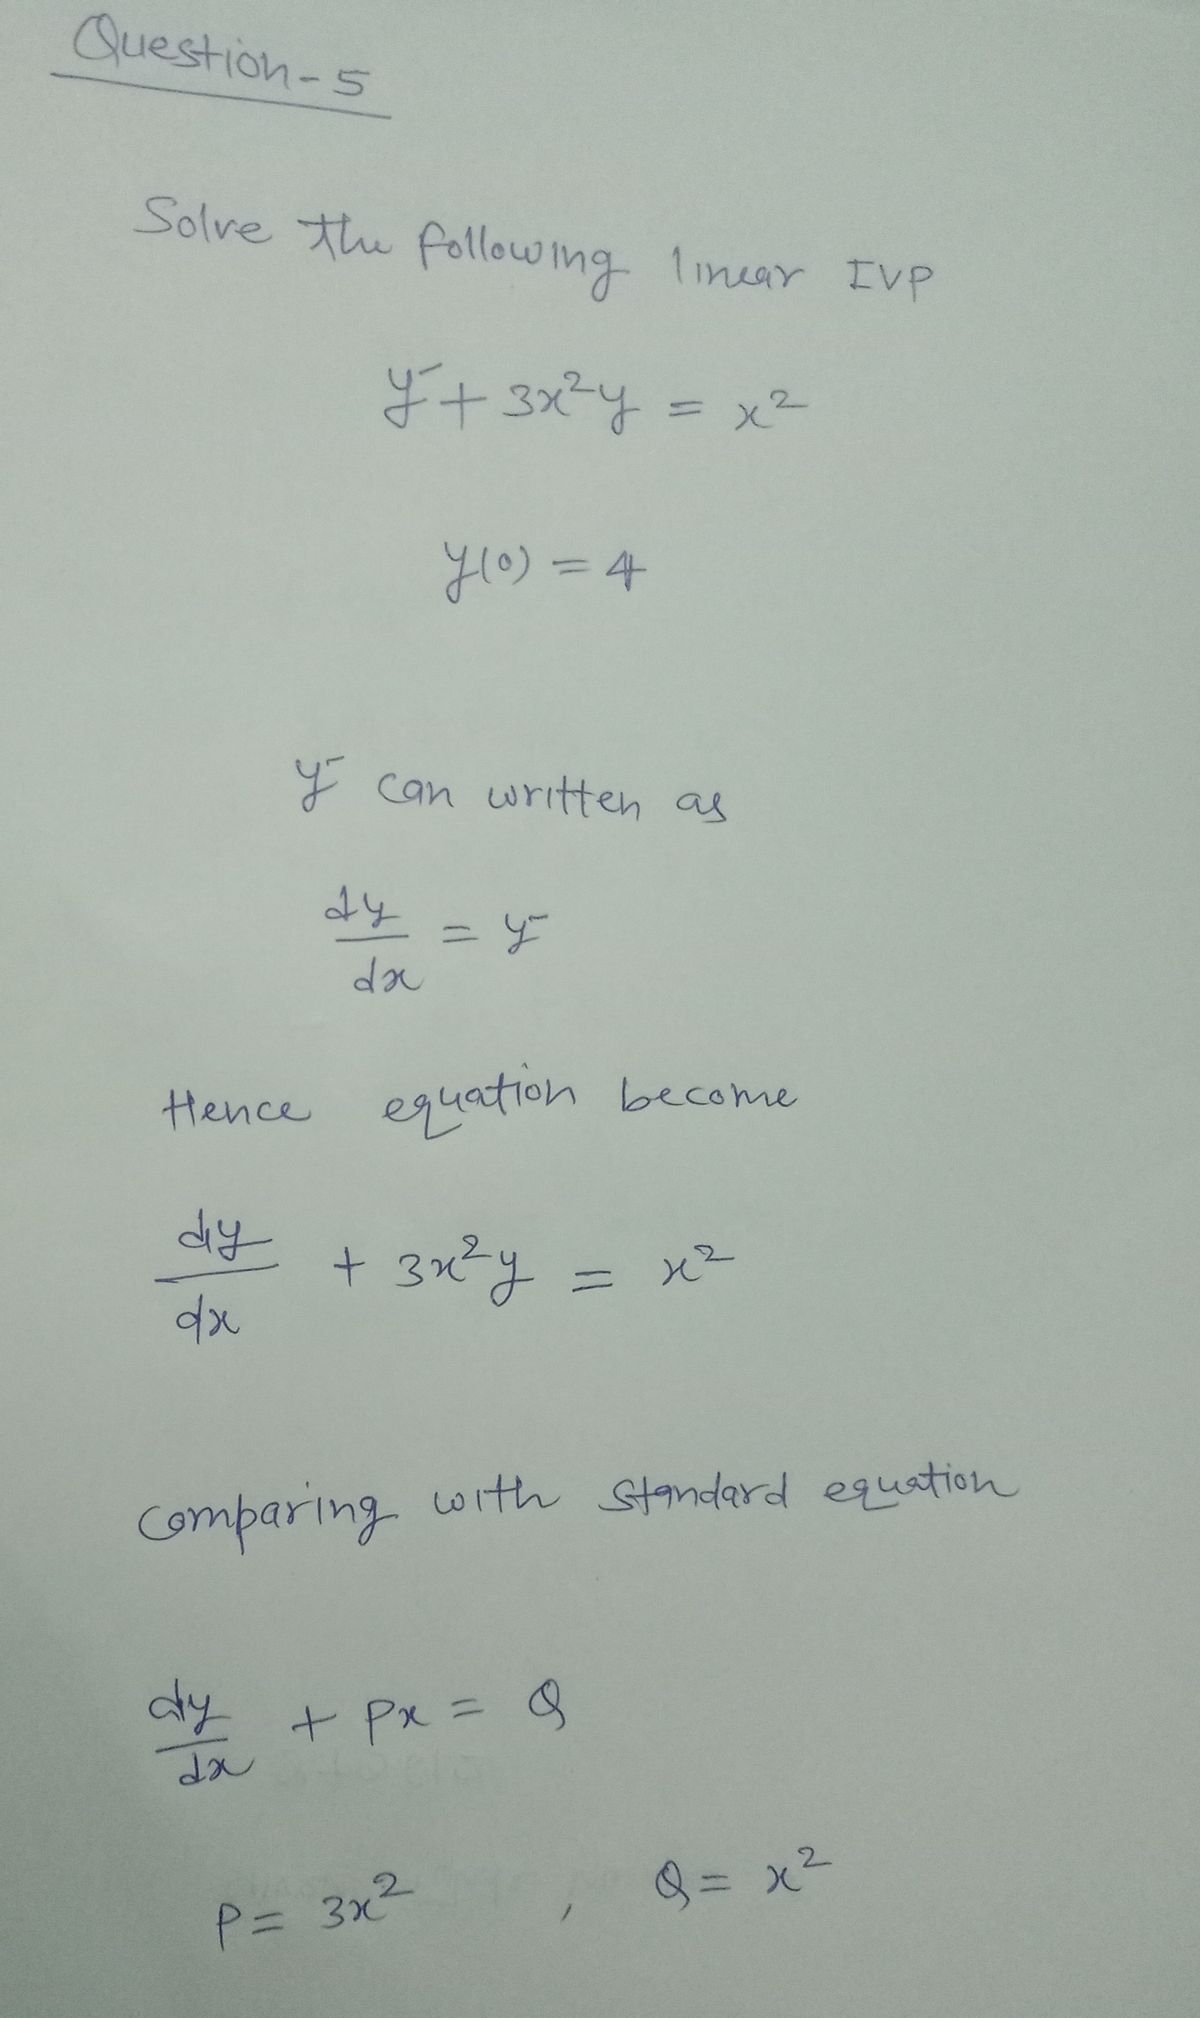 Question-5
Solve the following linear IVP
y⁻ + 3x²y = x²
y(0) = 4
y⁻ can written as
dy/dx = y⁻
Hence equation become
dy/dx + 3x²y = x²
comparing with standard equation
dy/dx + Px = Q
P = 3x² , Q = x²